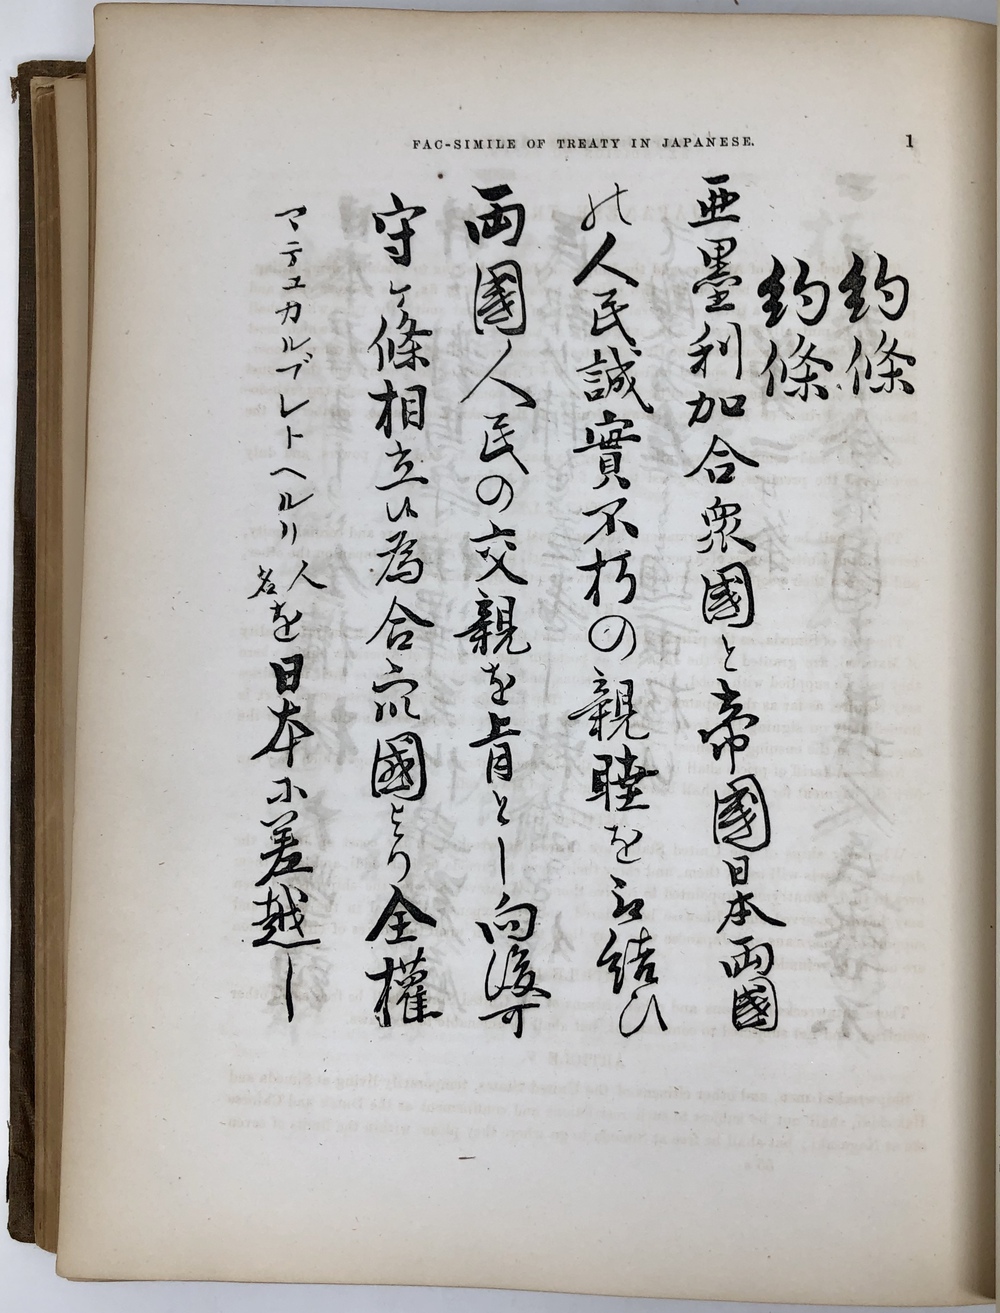 FAC-SIMILE OF TREATY IN JAPANESE.
1
約條
約條
亜墨利加合衆國と帝國日本両國
の人民誠實不朽の親睦を取結ひ
両國人民の交親を旨とし向後可
守ケ條相立候為合衆國より全權
マテュカルブレトヘルリ人名を日本に差越し